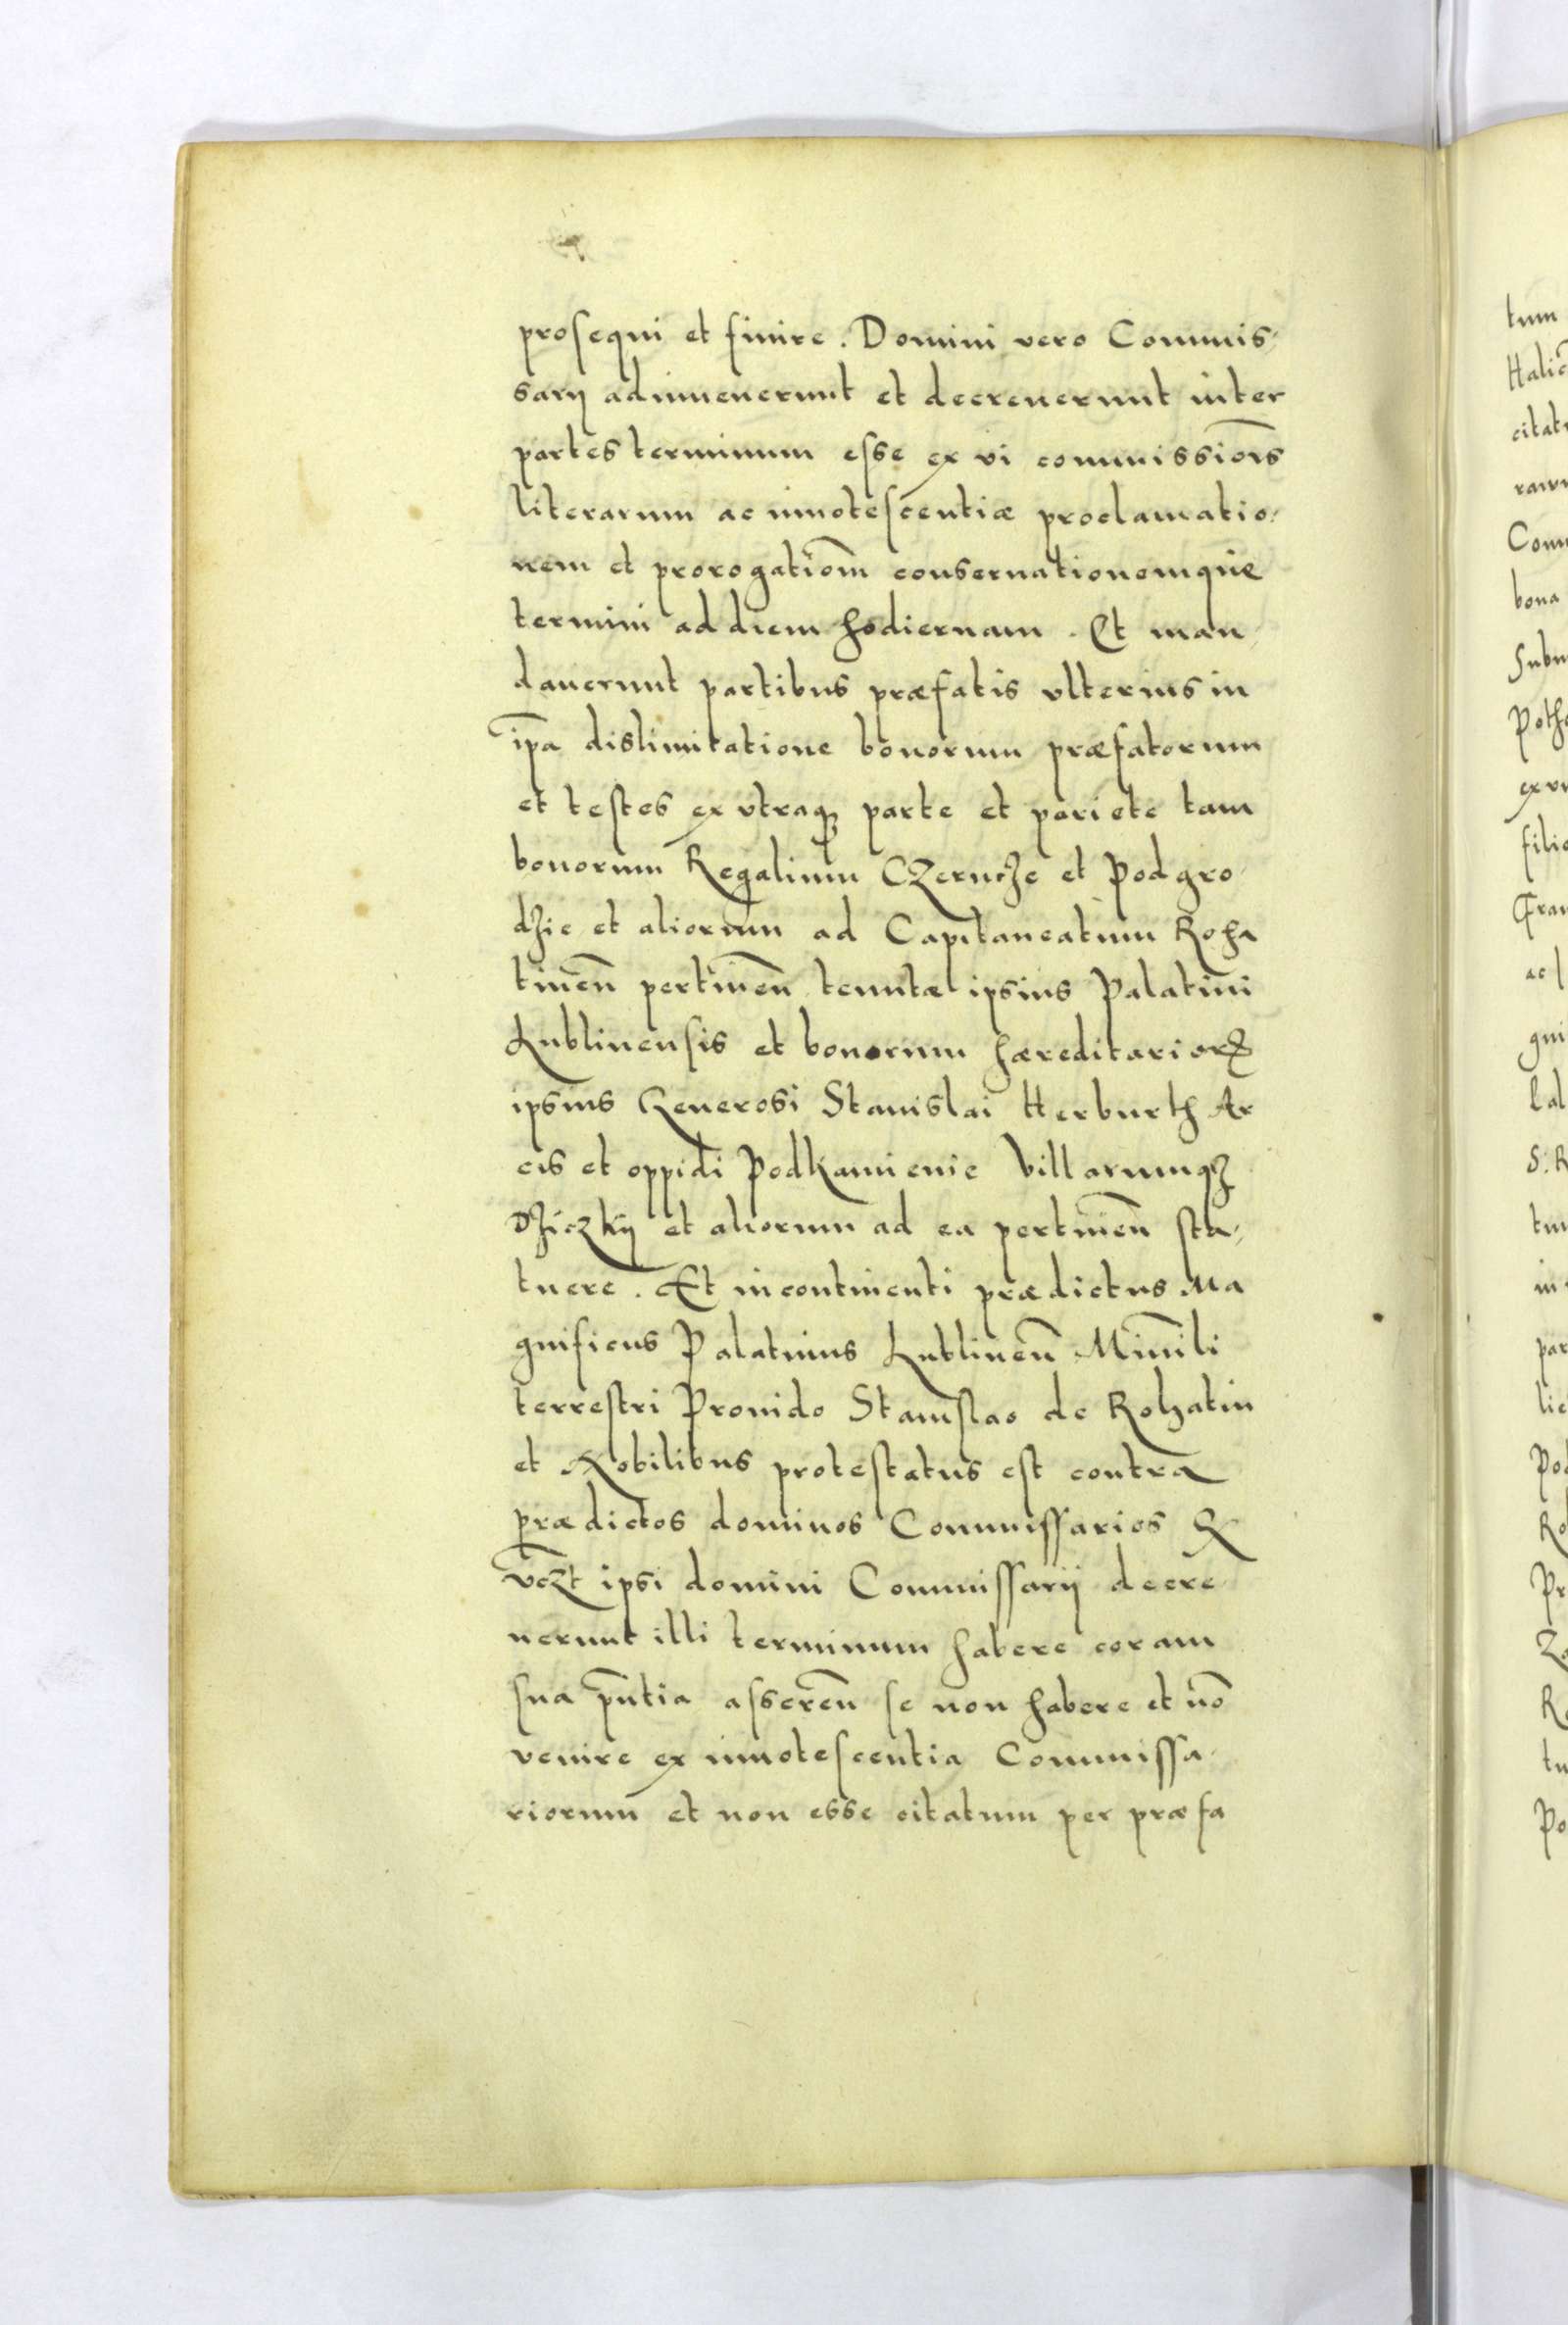 prosequi et finire. Domini vero Commis-
sarij adinuenerunt et decreuerunt inter
partes terminum esse ex vi commissiōis
literarum ac innotescentiæ proclamatio-
nem et prorogatiōm conseruationemque
termini ad diem hodiernam. Et man-
dauerunt partibus præfatis vlterius in
ip̄a dislimitatione bonorum præfatorum
et testes ex vtraq; parte et pariete tam
bonorum Regalium Czerncze et Podgro-
dzie et aliorum ad Capitaneatum Roha
tineñ pertineñ tenutæ ipsius Palatini
Lublinensis et bonorum hæreditarioꝝ
ipsius Generosi Stanislai Herburth Ar
cis et oppidi Podkamienie Villarumqꝫ
Dziczky et aliorum ad ea pertineñ sta-
tuere. Et incontinenti prædictus Ma
gnificus Palatinus Lublineñ Min̄ili
terrestri Prouido Stanislao de Rohatin
et Nobilibus protestatus est contra
prædictos dominos Commissarios Ex
vꝫt ipsi domini Commissarij decre-
uerunt illi terminum habere coram
sua p̄ntia assereñ se non habere et nō
venire ex innotescentia Commissa-
riorum et non esse citatum per præfa
tum
citat
Com
bona
Poth
ex vi
filio
ac
gni
lal
S. R
tu
in
par
lic
Pod
Ro
Pr
Za
R
tu
Po